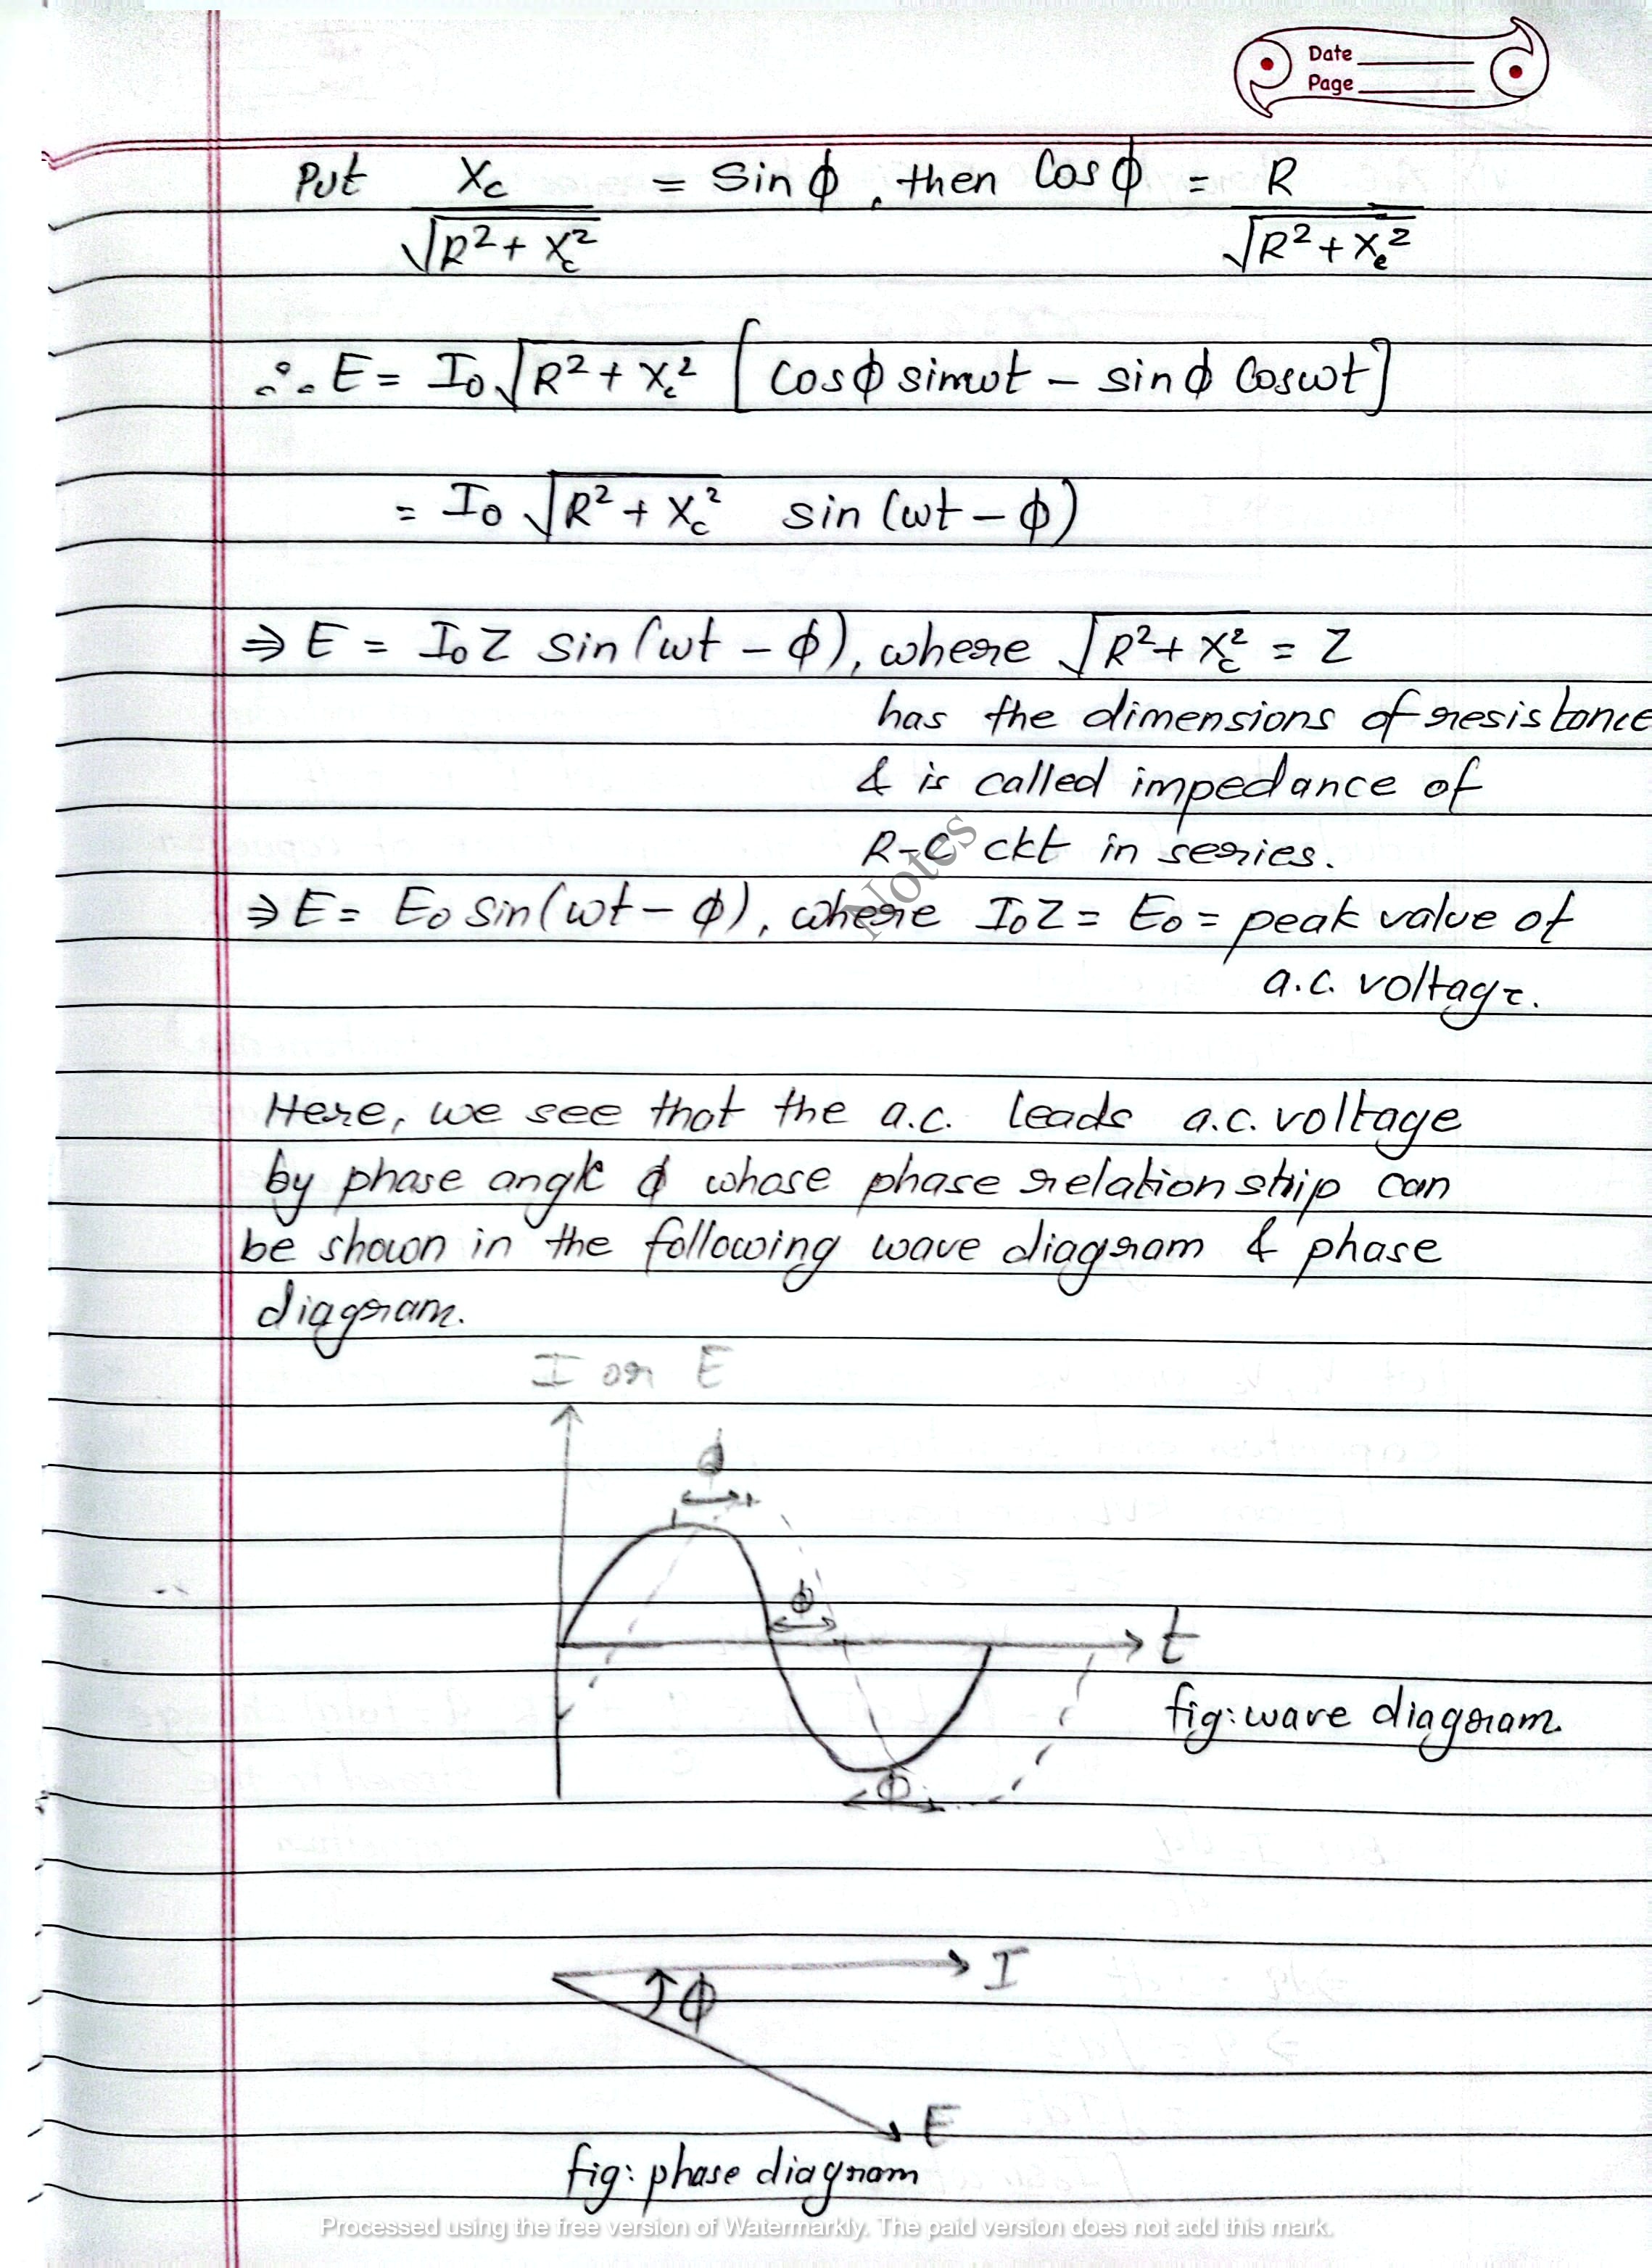 Date
Page
Put Xc/√(R²+Xc²) = Sin φ, then Cos φ = R/√(R²+Xc²)
∴ E = I₀√(R²+Xc²) [cosφ sinωt − sinφ Cosωt]
= I₀ √(R²+Xc²) sin (ωt − φ)
⇒ E = I₀Z sin(ωt − φ), where √(R²+Xc²) = Z
has the dimensions of resistance
& is called impedance of
R-C ckt in series.
Notes
⇒ E = E₀ sin(ωt − φ), where I₀Z = E₀ = peak value of
a.c. voltage.
Here, we see that the a.c. leads a.c. voltage
by phase angle φ whose phase relationship can
be shown in the following wave diagram & phase
diagram.
I or E
φ
φ
t
fig: wave diagram.
φ
I
φ
E
fig: phase diagram
Processed using the free version of Watermarkly. The paid version does not add this mark.